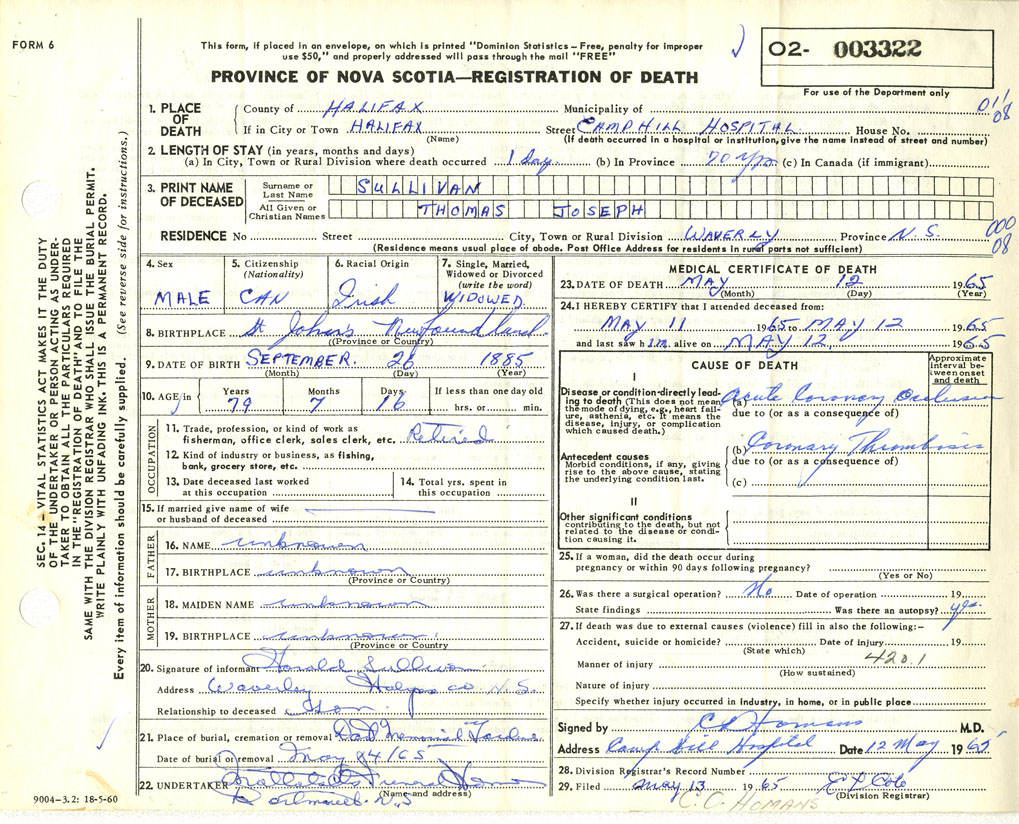 FORM 6
This form, if placed in an envelope, on which is printed "Dominion Statistics – Free, penalty for improper
use $50," and properly addressed will pass through the mail "FREE"
O2- 003322
For use of the Department only
PROVINCE OF NOVA SCOTIA—REGISTRATION OF DEATH
011
08
1. PLACE OF DEATH
County of HALIFAX Municipality of
If in City or Town HALIFAX Street CAMP HILL HOSPITAL House No.
(Name) (If death occurred in a hospital or institution, give the name instead of street and number)
2. LENGTH OF STAY (in years, months and days)
(a) In City, Town or Rural Division where death occurred 1 day (b) In Province 70 yrs (c) In Canada (if immigrant)
3. PRINT NAME OF DECEASED
Surname or Last Name SULLIVAN
All Given or Christian Names THOMAS JOSEPH
000
08
RESIDENCE No Street City, Town or Rural Division WAVERLY Province N. S.
(Residence means usual place of abode. Post Office Address for residents in rural parts not sufficient)
4. Sex
MALE
5. Citizenship
(Nationality)
CAN
6. Racial Origin
Irish
7. Single, Married,
Widowed or Divorced
(write the word)
WIDOWED
8. BIRTHPLACE St John's Newfoundland
(Province or Country)
9. DATE OF BIRTH SEPTEMBER 26 1885
(Month) (Day) (Year)
10. AGE in
Years 79
Months 7
Days 16
If less than one day old
hrs. or min.
OCCUPATION
11. Trade, profession, or kind of work as
fisherman, office clerk, sales clerk, etc. Retired
12. Kind of industry or business, as fishing,
bank, grocery store, etc.
13. Date deceased last worked
at this occupation
14. Total yrs. spent in
this occupation
15. If married give name of wife
or husband of deceased
FATHER
16. NAME unknown
17. BIRTHPLACE unknown
(Province or Country)
MOTHER
18. MAIDEN NAME unknown
19. BIRTHPLACE unknown
(Province or Country
20. Signature of informant Harold Sullivan
Address Waverley Halifax co N. S.
Relationship to deceased Son
21. Place of burial, cremation or removal Memorial Gardens
Date of burial or removal May 14/65
22. UNDERTAKER Funeral Home
(Name and address)
N.S
9004-3.2: 18-5-60
MEDICAL CERTIFICATE OF DEATH
23. DATE OF DEATH MAY 12 1965
(Month) (Day) (Year)
24. I HEREBY CERTIFY that I attended deceased from:
MAY 11 1965 to MAY 12 1965
and last saw h im alive on MAY 12 1965
CAUSE OF DEATH
Approximate
Interval be-
tween onset
and death
I
Disease or condition directly lead-
ing to death (This does not mean
the mode of dying, e.g., heart fail-
ure, asthenia, etc. It means the
disease, injury, or complication
which caused death.)
(a) Acute Coronary Occlusion
due to (or as a consequence of)
Antecedent causes
Morbid conditions, if any, giving
rise to the above cause, stating
the underlying condition last.
(b) Coronary Thrombosis
due to (or as a consequence of)
(c)
II
Other significant conditions
contributing to the death, but not
related to the disease or condi-
tion causing it.
25. If a woman, did the death occur during
pregnancy or within 90 days following pregnancy?
(Yes or No)
26. Was there a surgical operation? No Date of operation 19
State findings Was there an autopsy? yes
27. If death was due to external causes (violence) fill in also the following:-
Accident, suicide or homicide? Date of injury 19
(State which)
420.1
Manner of injury
(How sustained)
Nature of injury
Specify whether injury occurred in industry, in home, or in public place
Signed by C D Homans M.D.
Address Camp Hill Hospital Date 12 May 1965
28. Division Registrar's Record Number
29. Filed May 13 1965
(Division Registrar)
C. C. HOMANS
SEC. 14 – VITAL STATISTICS ACT MAKES IT THE DUTY
OF THE UNDERTAKER OR PERSON ACTING AS UNDER-
TAKER TO OBTAIN ALL THE PARTICULARS REQUIRED
IN THE "REGISTRATION OF DEATH" AND TO FILE THE
SAME WITH THE DIVISION REGISTRAR WHO SHALL ISSUE THE BURIAL PERMIT.
WRITE PLAINLY WITH UNFADING INK. THIS IS A PERMANENT RECORD.
Every item of information should be carefully supplied. (See reverse side for instructions.)